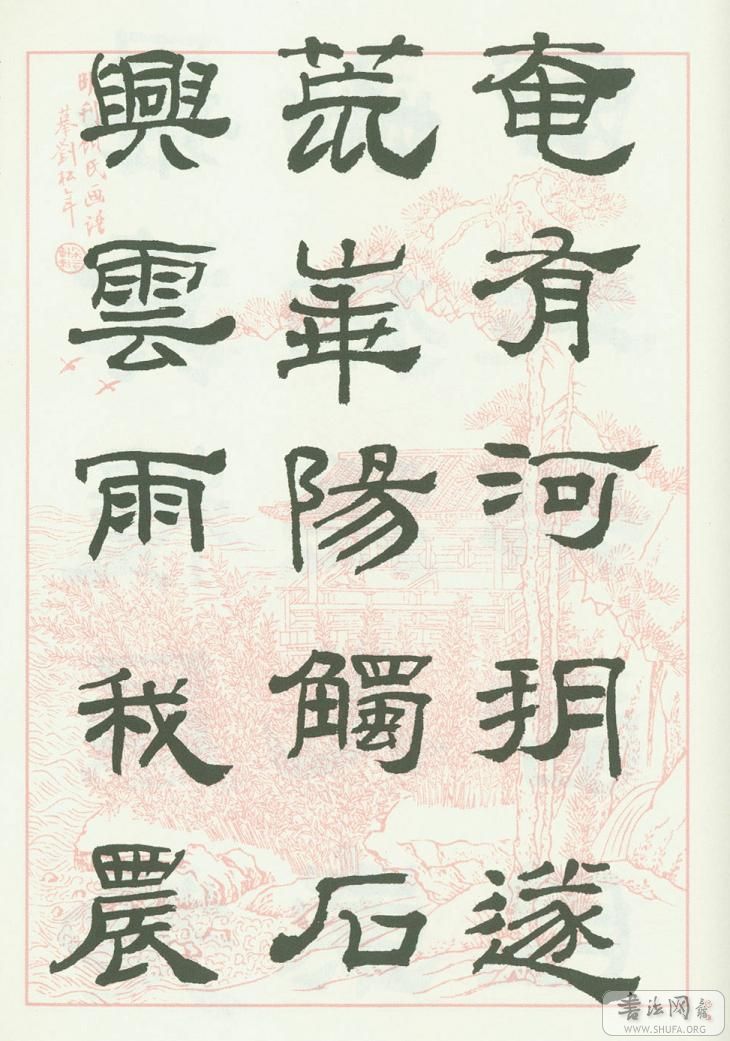 奄有河朔遂
荒華陽觸石
興雲雨我農
明刊顾氏画谱
摹劉松年
书法网
WWW.SHUFA.ORG